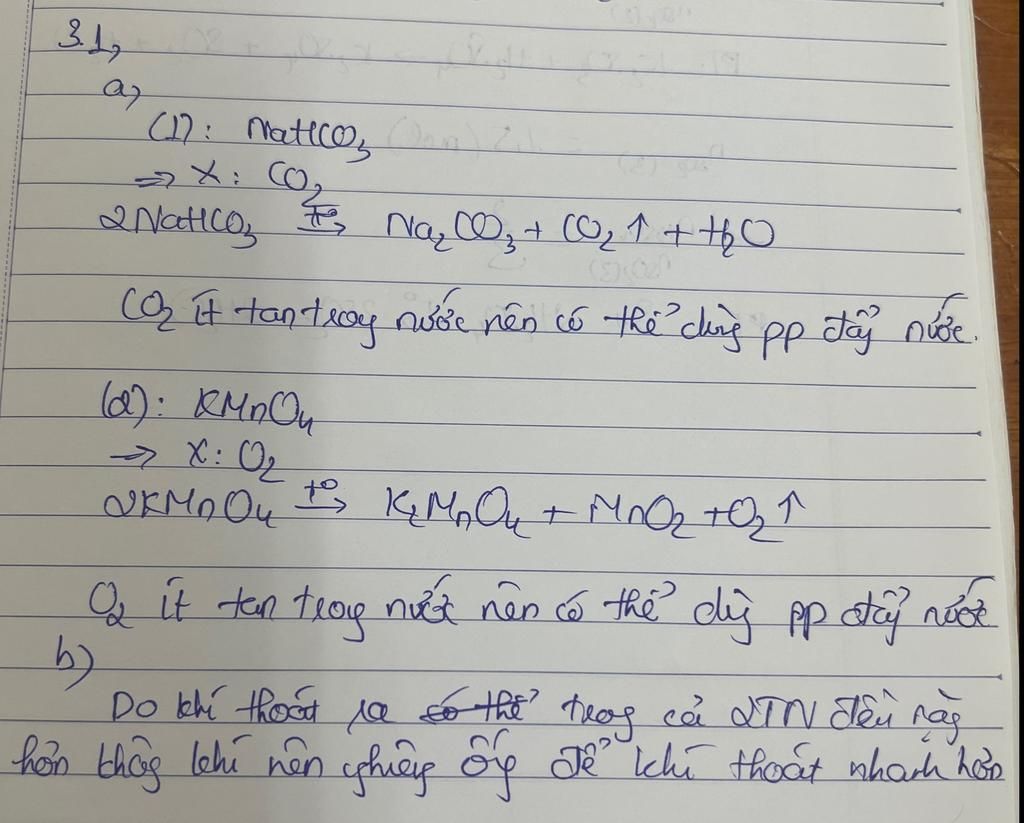 3.1,
a,
(1): NaHCO3
=> X: CO2
2NaHCO3 t°→ Na2CO3 + CO2↑ + H2O
CO2 ít tan trong nước nên có thể dùng pp đẩy nước.
(2): KMnO4
=> X: O2
2KMnO4 t°→ K2MnO4 + MnO2 + O2↑
O2 ít tan trong nước nên có thể dùng pp đẩy nước
b)
Do khí thoát ra có thể trong cả 2TN đều nặng
hơn không khí nên nghiêng ống để khí thoát nhanh hơn